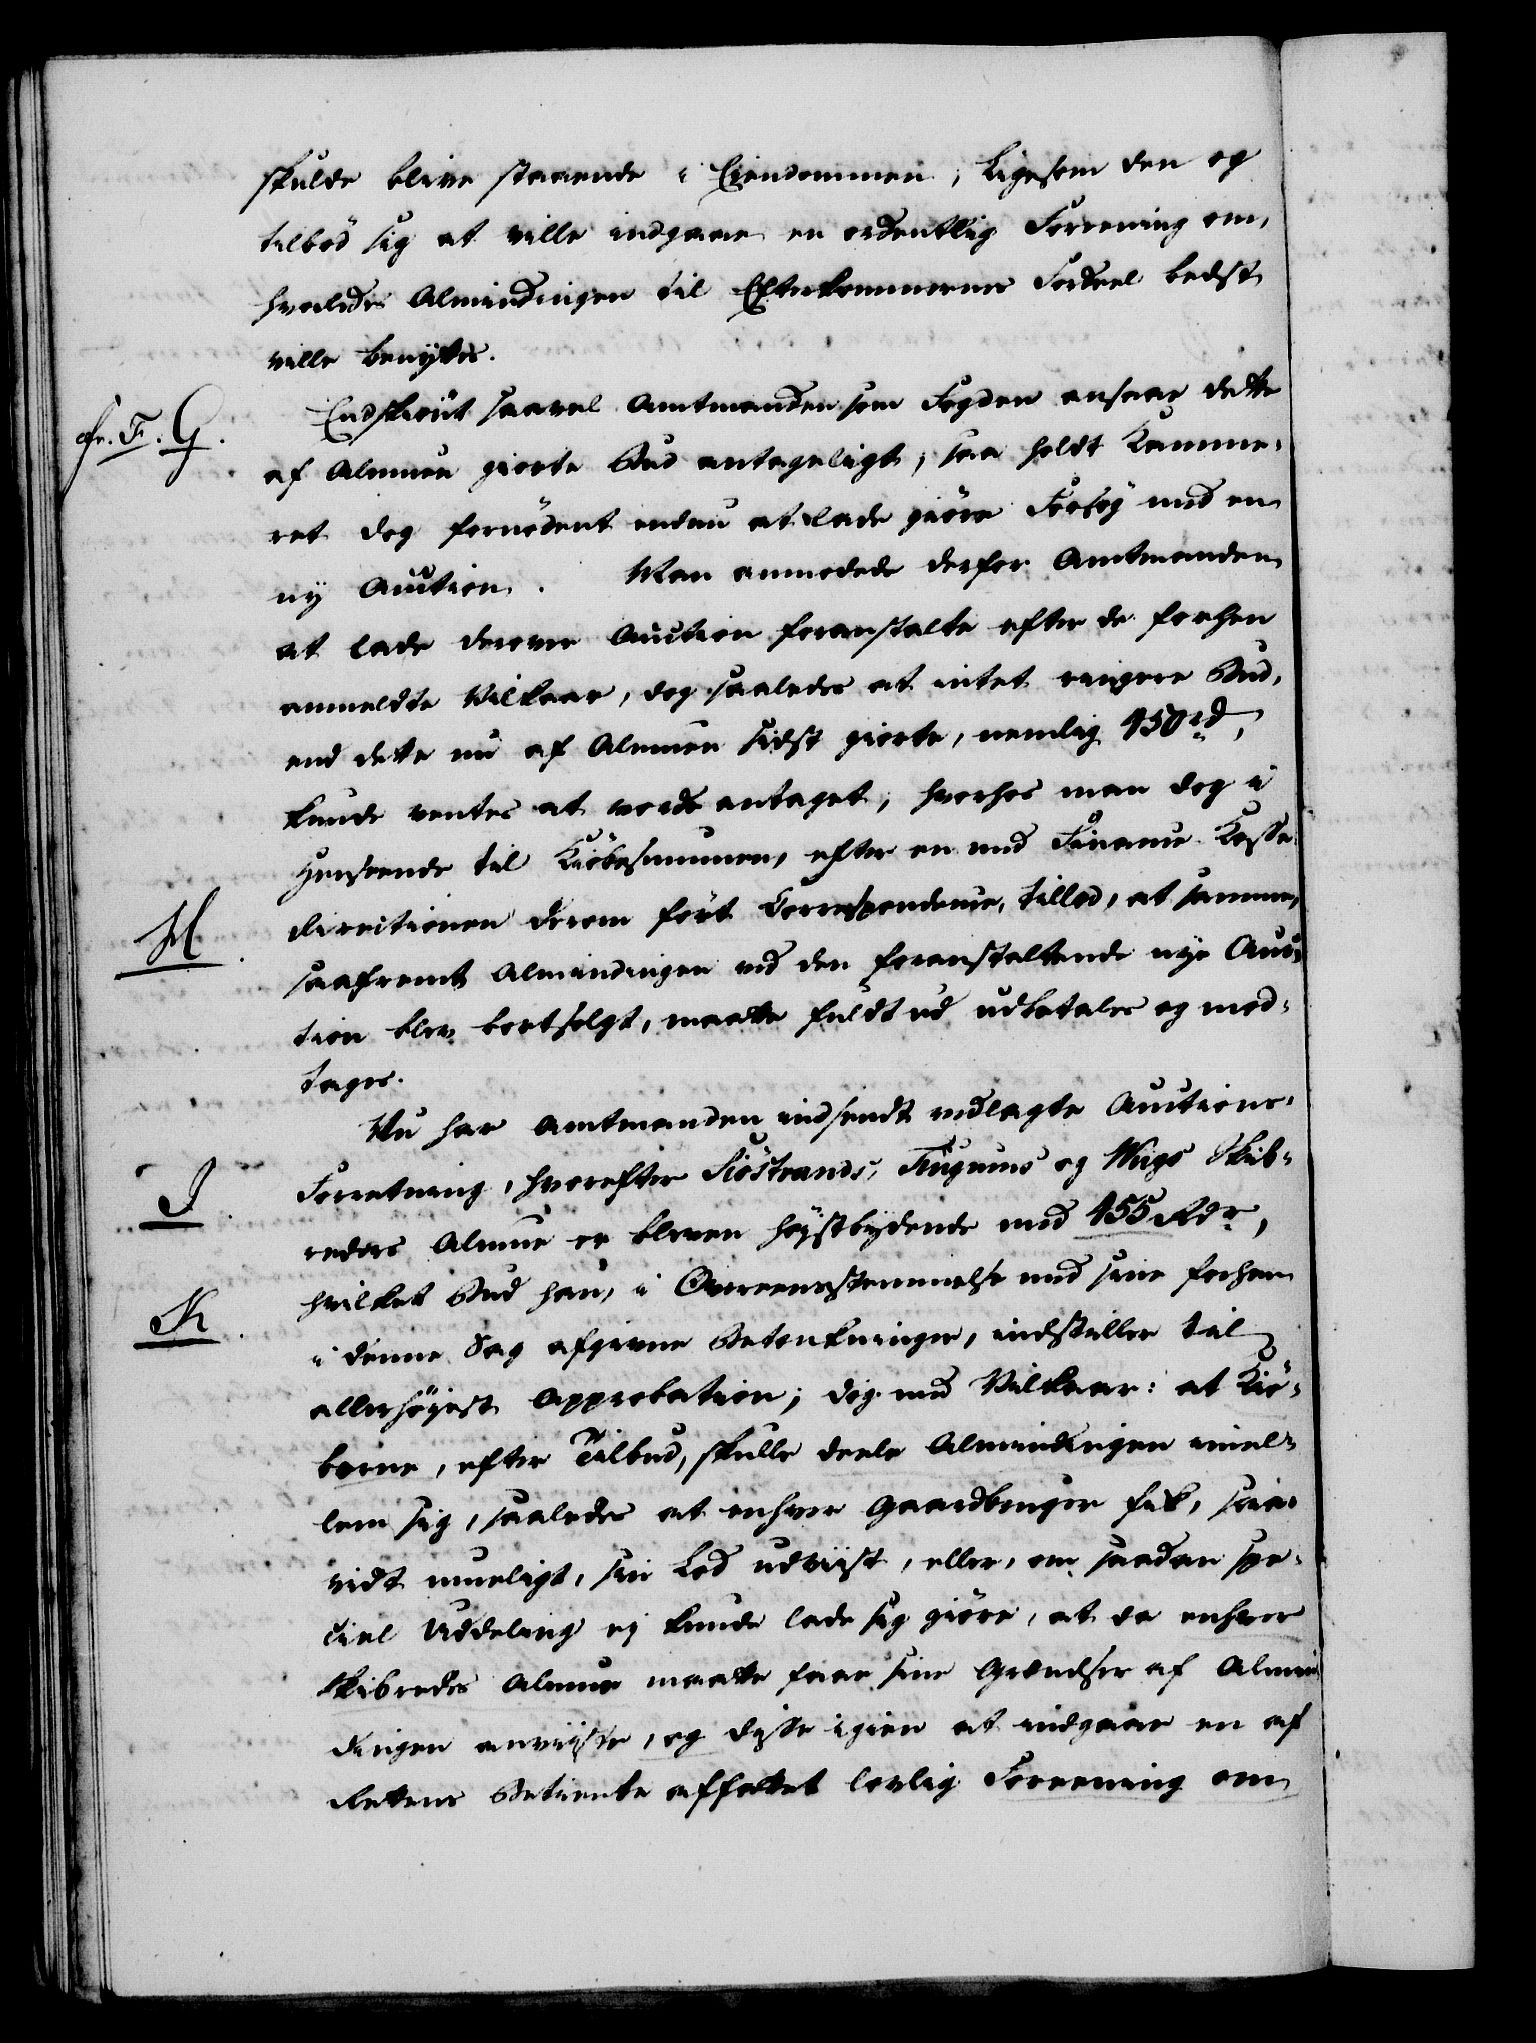 skulde blive staaende i Eiendommen, Ligesom den og
tilböd sig at ville indgaae en ordentlig Forening om,
hvorledes Almindingen til Efterkommernes Fordeel bedst
ville benyttes.
cfr. F. G.
Endskiönt saavel Amtmanden som Fogden ansaae dette
af Almuen giorte Bud antageligt, saa holdt Kamme-
ret dog fornödent endnu at lade giöre Forsög med en
ny Auction. Man anmodede derfor Amtmanden
at lade derover Auction foranstalte efter de forhen
anmeldte Vilkaar, dog saaledes at intet ringere Bud,
end dette nu af Almuen sidst giorte, nemlig 450 rd,
kunde ventes at worde antaget, hvorhos man dog i
Henseende til Kiöbesummen, efter en med Finance Casse
H.
directionen derom fört Correspondence, tillod, at samme,
saafremt Almindingen ved den foranstaltende nye Auc-
tion blev bortsolgt, maatte fuldt ud udbetales og mod-
tages.
Nu har Amtmanden indsendt vedlagte Auctions-
I.
Forretning, hvorefter Siöstrands, Fugums og Wiigs Skib-
reders Almue er bleven höystbydende med 455 Rdr,
K.
hvilket Bud han, i Overeensstemmelse med sine forhen
i denne Sag afgivne Betænkninger, indstiller til
allerhöyest Approbation; dog med Vilkaar: at Kiö-
berne, efter Tilbud, skulle deele Almindingen imel-
lem sig, saaledes at enhver Gaardbruger fik, saa-
vidt mueligt, sin Lod udviist, eller, om saadan spe-
ciel Uddeling ej kunde lade sig giöre, at da enhver
Skibredes Almue maatte faae sine Grændser af Almin
dingen anviiste, og disse igien at indgaae en af
Rettens Betiente affattet lovlig Foreening om